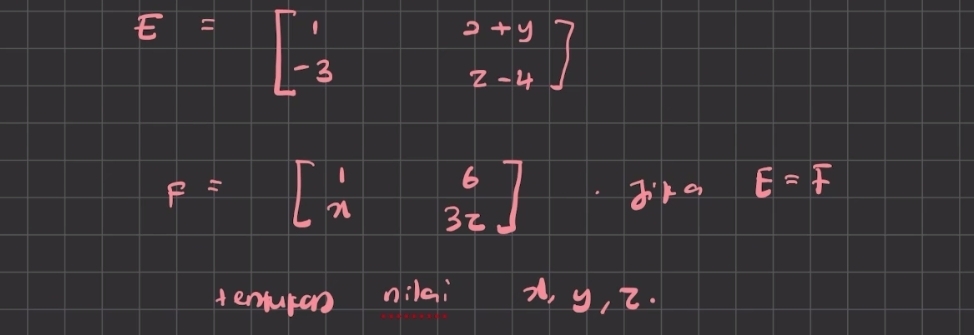 E = [ 1 2+y
-3 z-4 ]
F = [ 1 6
x 3z ] . Jika E = F
tentukan nilai x, y, z.